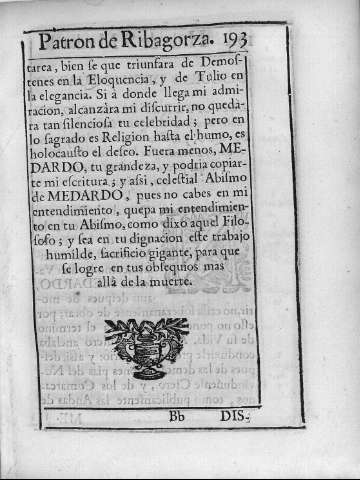 Patron de Ribagorza. 193
tarea, bien se que triunfara de Demos-
tenes en la Eloquencia, y de Tulio en
la elegancia. Si à donde llega mi admi-
racion, alcanzàra mi discurrir, no queda-
ra tan silenciosa tu celebridad; pero en
lo sagrado es Religion hasta el humo, es
holocausto el deseo. Fuera menos, ME-
DARDO, tu grandeza, y podria copiar-
te mi escritura; y assi, celestial Abismo
de MEDARDO, pues no cabes en mi
entendimiento, quepa mi entendimien-
to en tu Abismo, como dixo aquel Filo-
sofo; y sea en tu dignacion este trabajo
humilde, sacrificio gigante, para que
se logre en tus obsequios mas
allà de la muerte.
Bb DIS-